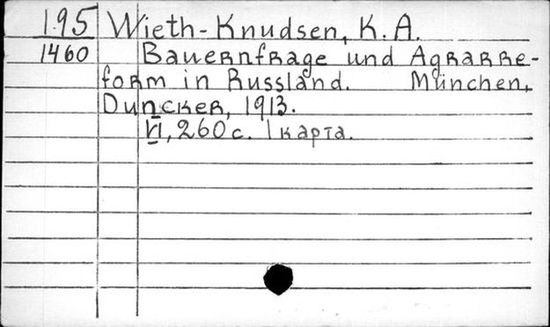 195 Wieth-Knudsen, K. A.
1460 Bauernfrage und Agrarre-
form in Russland. München,
Duncker, 1913.
VI, 260 с. 1 карта.